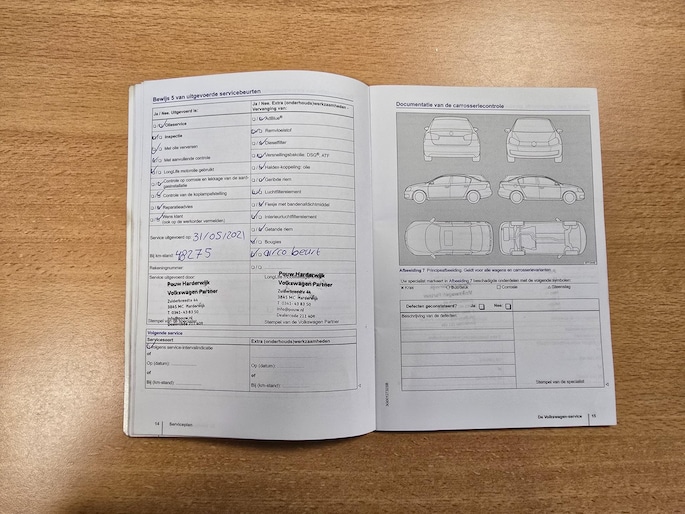 Bewijs 5 van uitgevoerde servicebeurten
Ja / Nee Uitgevoerd is:
Ja / Nee Extra (onderhouds)werkzaamheden -
Vervanging van:
Olieservice
AdBlue®
Inspectie
Remvloeistof
Met olie verversen
Dieselfilter
Met aanvullende controle
Versnellingsbakolie: DSG®, ATF
LongLife motorolie gebruikt
Haldex-koppeling: olie
Controle op corrosie en lekkage van de aard-
gasinstallatie
Geribde riem
Controle van de koplampafstelling
Luchtfilterelement
Reparatieadvies
Flesje met bandenafdichtmiddel
Wens klant
(ook op de werkorder vermelden)
Interieurluchtfilterelement
Getande riem
Service uitgevoerd op: 31/05/2021
Bougies
Bij km-stand: 48275
airco beurt
Rekeningnummer:
Service uitgevoerd door:
Pouw Harderwijk
Volkswagen Partner
Zuiderbreedte 46
3845 MC Harderwijk
T 0341-43 83 50
Dealercode 211 409
Stempel van de
Pouw Harderwijk
Volkswagen Partner
Zuiderbreedte 46
3845 MC Harderwijk
T 0341-43 83 50
info@pouw.nl
Dealercode 211 409
Stempel van de Volkswagen Partner
Volgende service
Servicesoort
Extra (onderhouds)werkzaamheden
Volgens service-intervalindicatie
of
Op (datum):
Op (datum):
of
of
Bij (km-stand):
Bij (km-stand):
14 Serviceplan
Documentatie van de carrosseriecontrole
Afbeelding 7 Principeafbeelding: Geldt voor alle wagens en carrosserievarianten.
Uw specialist markeert in Afbeelding 7 beschadigde onderdelen met de volgende symbolen:
Kras
Buts/deuk
Corrosie
Steenslag
Defecten geconstateerd? Ja: Nee:
Beschrijving van de defecten:
Stempel van de specialist
De Volkswagen-service 15